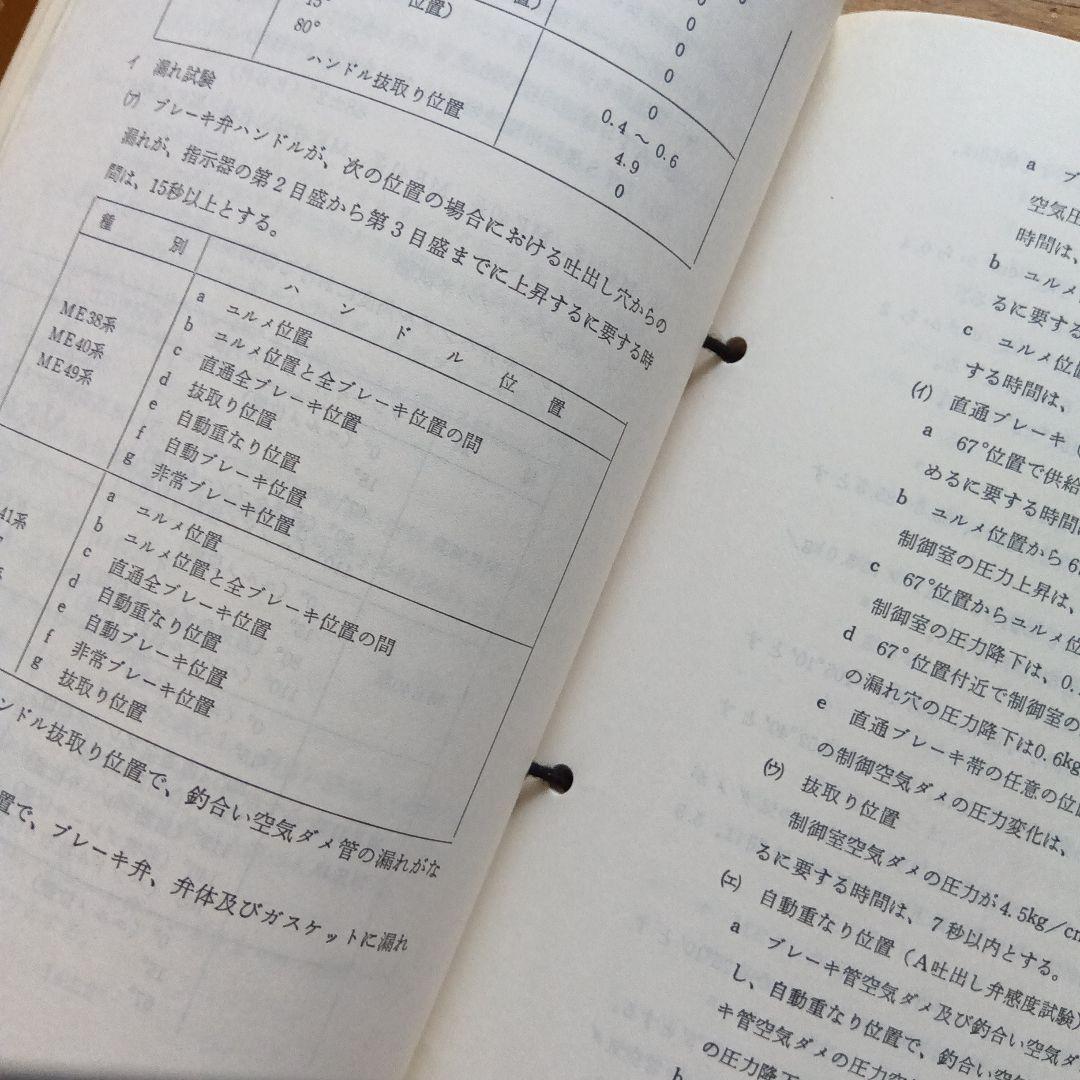 位置）
15°
80°
ハンドル抜取り位置
0
0
0
0
0.4 〜 0.6
4.9
0
イ 漏れ試験
(ア) ブレーキ弁ハンドルが、次の位置の場合における吐出し穴からの
漏れが、指示器の第2目盛から第3目盛までに上昇するに要する時
間は、15秒以上とする。
種 別
ハ ン ド ル 位 置
ME38系
ME40系
ME49系
a ユルメ位置
b ユルメ位置と全ブレーキ位置の間
c 直通全ブレーキ位置
d 抜取り位置
e 自動重なり位置
f 自動ブレーキ位置
g 非常ブレーキ位置
41系
a ユルメ位置
b ユルメ位置と全ブレーキ位置の間
c 直通全ブレーキ位置
d 自動重なり位置
e 自動ブレーキ位置
f 非常ブレーキ位置
g 抜取り位置
ンドル抜取り位置で、釣合い空気ダメ管の漏れがな
置で、ブレーキ弁、弁体及びガスケットに漏れ
a ブ
空気圧
時間は、
b ユルメ
るに要する
c ユルメ位置
する時間は、
(イ) 直通ブレーキ（
a 67°位置で供給
めるに要する時間
b ユルメ位置から6
制御室の圧力上昇は、
c 67°位置からユルメ位
制御室の圧力降下は、0.
d 67°位置付近で制御室の
の漏れ穴の圧力降下は0.6kg
e 直通ブレーキ帯の任意の位
の制御空気ダメの圧力変化は、
(ウ) 抜取り位置
制御室空気ダメの圧力が4.5kg/cm
るに要する時間は、7秒以内とする。
(エ) 自動重なり位置（A吐出し弁感度試験）
a ブレーキ管空気ダメ及び釣合い空気ダ
し、自動重なり位置で、釣合い空気
キ管空気ダメの圧力
の圧力降下
b